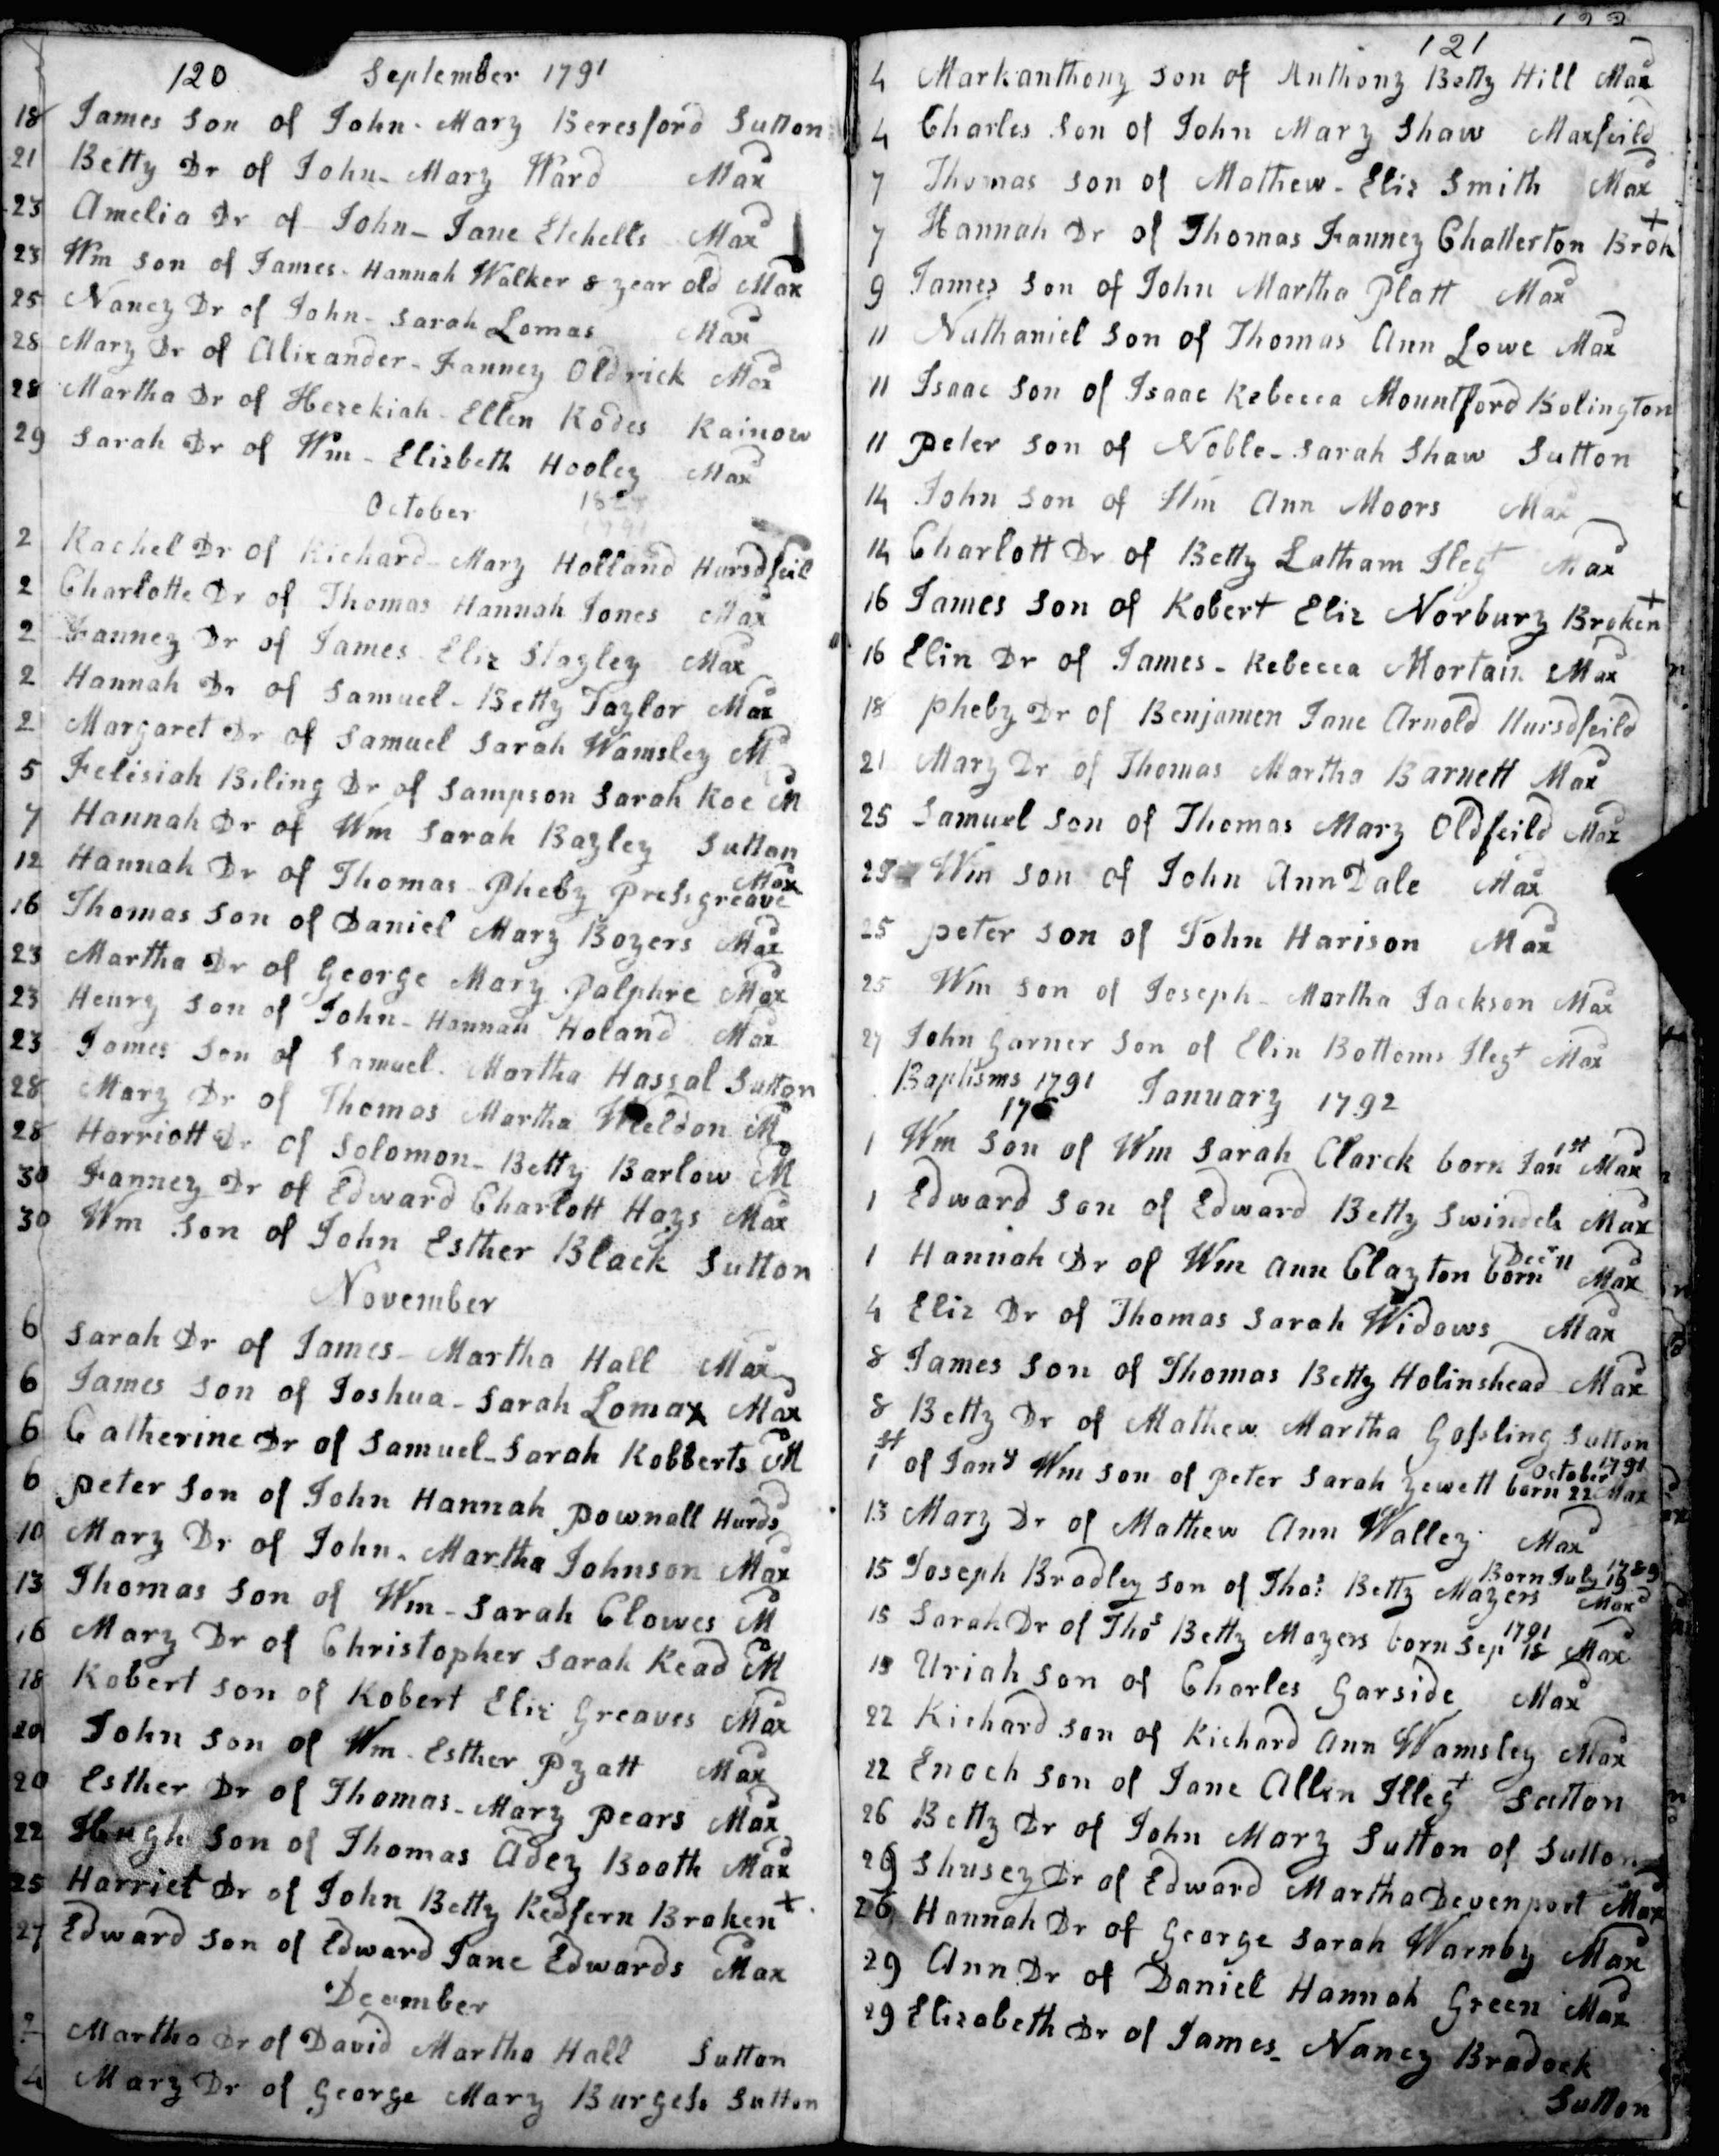 120 September 1791
18 James Son of John - Mary Beresford Sutton
21 Betty Dr of John - Mary Ward Maxd
23 Amelia Dr of John - Jane Etchells Maxd
23 Wm Son of James - Hannah Walker 8 year old Maxd
25 Nancy Dr of John - Sarah Lomas Maxd
28 Mary Dr of Alixander - Fanney Oldrick Maxd
28 Martha Dr of Hezekiah - Ellen Rodes Rainow
29 Sarah Dr of Wm - Elizbeth Hooley Maxd
October
1791
2 Rachel Dr of Richard - Mary Holland Hursdfeil
2 Charlotte Dr of Thomas Hannah Jones Maxd
2 Fanney Dr of James - Eliz Slayley Maxd
2 Hannah Dr of Samuel - Betty Taylor Maxd
2 Margaret Dr of Samuel Sarah Wamsley Md
5 Felisiah Biling Dr of Sampson Sarah Roe Md
7 Hannah Dr of Wm Sarah Bayley Sutton
12 Hannah Dr of Thomas - Pheby Presgreave Maxd
16 Thomas Son of Daniel Mary Boyers Maxd
23 Martha Dr of George Mary Palphre Maxd
23 Henry Son of John - Hannah Holand Maxd
23 James Son of Samuel - Martha Hassal Sutton
28 Mary Dr of Thomas Martha Weldon Md
28 Harriott Dr of Solomon - Betty Barlow Md
30 Fanney Dr of Edward Charlott Hays Maxd
30 Wm Son of John Esther Black Sutton
November
6 Sarah Dr of James - Martha Hall Maxd
6 James Son of Joshua - Sarah Lomax Maxd
6 Catherine Dr of Samuel - Sarah Robberts Md
6 Peter Son of John Hannah Pownall Hurds
10 Mary Dr of John - Martha Johnson Maxd
13 Thomas Son of Wm - Sarah Clowes Md
16 Mary Dr of Christopher Sarah Read Md
18 Robert Son of Robert Eliz Greaves Maxd
20 John Son of Wm - Esther Pyatt Maxd
20 Esther Dr of Thomas - Mary Pears Maxd
22 Hugh Son of Thomas Adey Booth Maxd
25 Harriet Dr of John Betty Redfern Broken+
27 Edward Son of Edward Jane Edwards Maxd
December
Martha Dr of David Martha Hall Sutton
4 Mary Dr of George Mary Burgess Sutton
121
4 Markanthony Son of Anthony Betty Hill Maxd
4 Charles Son of John Mary Shaw Maxfeild
7 Thomas Son of Mathew - Eliz Smith Maxd
7 Hannah Dr of Thomas Fanney Chatterton Brok+
9 James Son of John Martha Platt Maxd
11 Nathaniel Son of Thomas Ann Lowe Maxd
11 Isaac Son of Isaac Rebecca Mountford Bolington
11 Peter Son of Noble - Sarah Shaw Sutton
14 John Son of Wm Ann Moors Maxd
14 Charlott Dr of Betty Latham Ilegt Maxd
16 James Son of Robert Eliz Norbury Broken+
16 Elin Dr of James - Rebecca Mortain Maxd
18 Pheby Dr of Benjamen Jane Arnold Hursdfeild
21 Mary Dr of Thomas Martha Barnett Maxd
25 Samuel Son of Thomas Mary Oldfeild Maxd
Wm Son of John Ann Dale Maxd
25 Peter Son of John Harison Maxd
25 Wm Son of Joseph - Martha Jackson Maxd
27 John Garner Son of Elin Bottoms Ilegt Maxd
Baptisms 1791 January 1792
1 Wm Son of Wm Sarah Clarck born Jan 1st Maxd
1 Edward Son of Edward Betty Swindels Maxd
1 Hannah Dr of Wm Ann Clayton born Decr 11 Maxd
4 Eliz Dr of Thomas Sarah Widows Maxd
8 James Son of Thomas Betty Holinshead Maxd
8 Betty Dr of Mathew Martha Gossling Sutton
1st of Jany Wm Son of Peter Sarah Yewett born 22 October 1791 Max
13 Mary Dr of Mathew Ann Walley Maxd
15 Joseph Bradley Son of Thos Betty Mayers Born July 19 1789 Maxd
15 Sarah Dr of Thos Betty Mayers born Sep 18 1791 Maxd
19 Uriah Son of Charles Garside Maxd
22 Richard Son of Richard Ann Wamsley Maxd
22 Enoch Son of Jane Allin Illegt Sutton
26 Betty Dr of John Mary Sutton of Sutton
26 Shusey Dr of Edward Martha Devenport Maxd
26 Hannah Dr of George Sarah Warnby Maxd
29 Ann Dr of Daniel Hannah Green Maxd
29 Elizabeth Dr of James - Nancy Bradock
Sutton